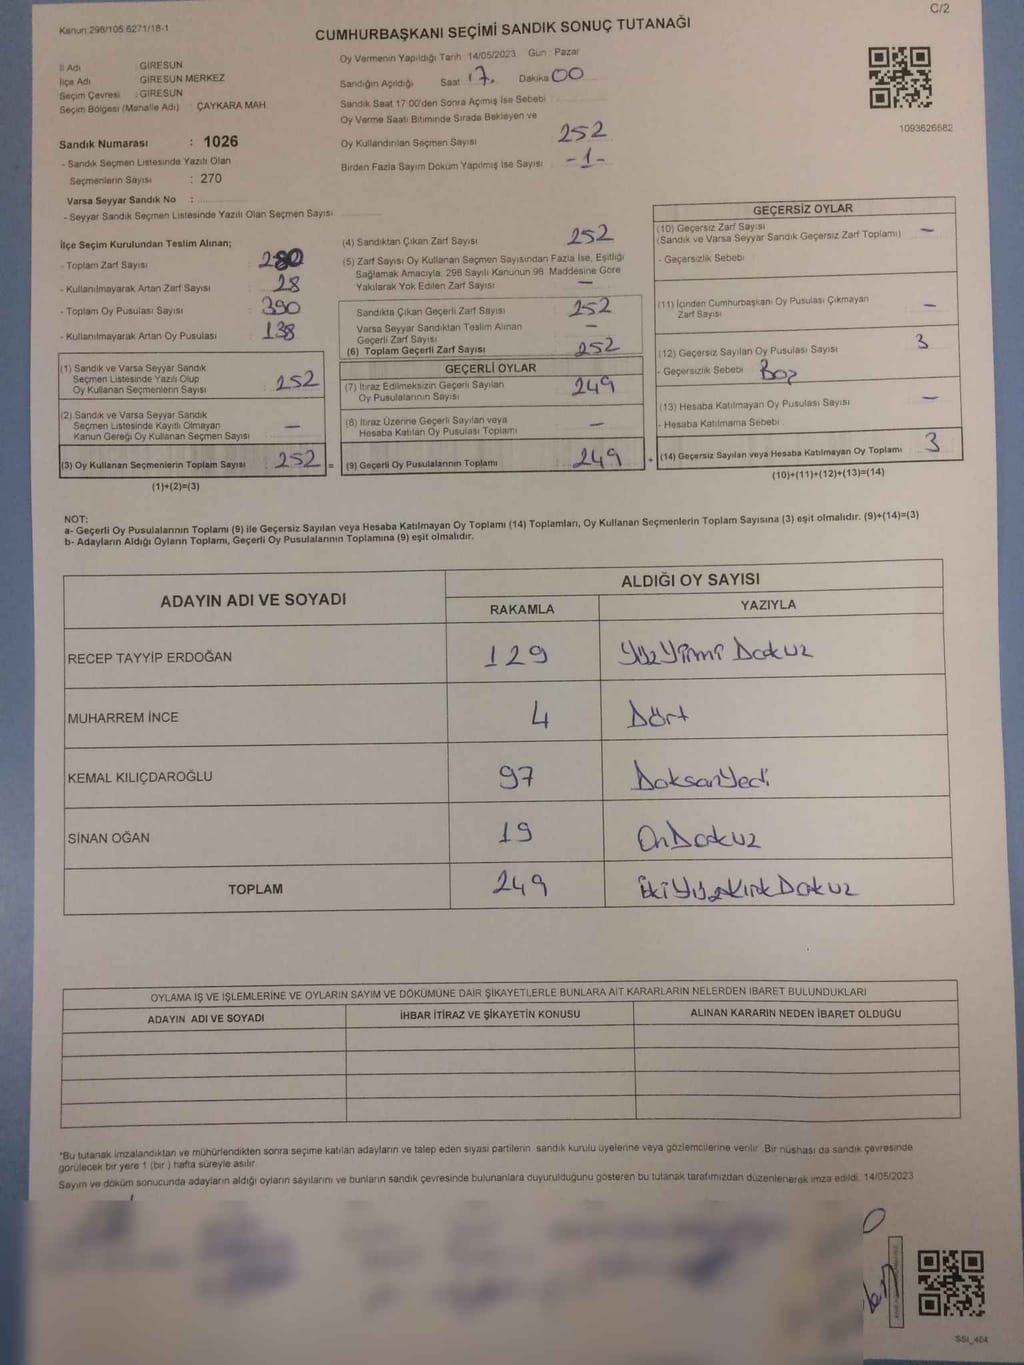 Kanun:298/105 6271/18-1
C/2
CUMHURBAŞKANI SEÇİMİ SANDIK SONUÇ TUTANAĞI
İl Adı : GİRESUN
İlçe Adı : GİRESUN MERKEZ
Seçim Çevresi : GİRESUN
Seçim Bölgesi (Mahalle Adı) : ÇAYKARA MAH.
Oy Vermenin Yapıldığı Tarih :14/05/2023 Gün : Pazar
Sandığın Açıldığı Saat : 17. Dakika 00
Sandık Saat 17.00'den Sonra Açılmış İse Sebebi
Oy Verme Saati Bitiminde Sırada Bekleyen ve
Oy Kullandırılan Seçmen Sayısı 252
Birden Fazla Sayım Döküm Yapılmış İse Sayısı : -1-
1093626682
Sandık Numarası : 1026
- Sandık Seçmen Listesinde Yazılı Olan
Seçmenlerin Sayısı : 270
Varsa Seyyar Sandık No :
- Seyyar Sandık Seçmen Listesinde Yazılı Olan Seçmen Sayısı
İlçe Seçim Kurulundan Teslim Alınan;
- Toplam Zarf Sayısı : 280
- Kullanılmayarak Artan Zarf Sayısı : 28
- Toplam Oy Pusulası Sayısı : 390
- Kullanılmayarak Artan Oy Pusulası : 138
(1) Sandık ve Varsa Seyyar Sandık
Seçmen Listesinde Yazılı Olup
Oy Kullanan Seçmenlerin Sayısı : 252
(2) Sandık ve Varsa Seyyar Sandık
Seçmen Listesinde Kayıtlı Olmayan
Kanun Gereği Oy Kullanan Seçmen Sayısı : —
(3) Oy Kullanan Seçmenlerin Toplam Sayısı : 252 =
(1)+(2)=(3)
(4) Sandıktan Çıkan Zarf Sayısı : 252
(5) Zarf Sayısı Oy Kullanan Seçmen Sayısından Fazla İse, Eşitliği
Sağlamak Amacıyla, 298 Sayılı Kanunun 98. Maddesine Göre
Yakılarak Yok Edilen Zarf Sayısı : —
Sandıkta Çıkan Geçerli Zarf Sayısı : 252
Varsa Seyyar Sandıktan Teslim Alınan
Geçerli Zarf Sayısı : —
(6) Toplam Geçerli Zarf Sayısı : 252
GEÇERLİ OYLAR
(7) İtiraz Edilmeksizin Geçerli Sayılan
Oy Pusulalarının Sayısı : 249
(8) İtiraz Üzerine Geçerli Sayılan veya
Hesaba Katılan Oy Pusulası Toplamı : —
(9) Geçerli Oy Pusulalarının Toplamı : 249 +
GEÇERSİZ OYLAR
(10) Geçersiz Zarf Sayısı
(Sandık ve Varsa Seyyar Sandık Geçersiz Zarf Toplamı) : —
- Geçersizlik Sebebi :
(11) İçinden Cumhurbaşkanı Oy Pusulası Çıkmayan
Zarf Sayısı : —
(12) Geçersiz Sayılan Oy Pusulası Sayısı : 3
- Geçersizlik Sebebi : Boş
(13) Hesaba Katılmayan Oy Pusulası Sayısı : —
- Hesaba Katılmama Sebebi :
(14) Geçersiz Sayılan veya Hesaba Katılmayan Oy Toplamı : 3
(10)+(11)+(12)+(13)=(14)
NOT:
a- Geçerli Oy Pusulalarının Toplamı (9) ile Geçersiz Sayılan veya Hesaba Katılmayan Oy Toplamı (14) Toplamları, Oy Kullanan Seçmenlerin Toplam Sayısına (3) eşit olmalıdır. (9)+(14)=(3)
b- Adayların Aldığı Oyların Toplamı, Geçerli Oy Pusulalarının Toplamına (9) eşit olmalıdır.
ADAYIN ADI VE SOYADI ALDIĞI OY SAYISI
RAKAMLA YAZIYLA
RECEP TAYYİP ERDOĞAN 129 YüzYirmi Dokuz
MUHARREM İNCE 4 Dört
KEMAL KILIÇDAROĞLU 97 DoksanYedi
SİNAN OĞAN 19 OnDokuz
TOPLAM 249 İkiYüzKırkDokuz
OYLAMA İŞ VE İŞLEMLERİNE VE OYLARIN SAYIM VE DÖKÜMÜNE DAİR ŞİKAYETLERLE BUNLARA AİT KARARLARIN NELERDEN İBARET BULUNDUKLARI
ADAYIN ADI VE SOYADI İHBAR İTİRAZ VE ŞİKAYETİN KONUSU ALINAN KARARIN NEDEN İBARET OLDUĞU
*Bu tutanak imzalandıktan ve mühürlendikten sonra seçime katılan adayların ve talep eden siyasi partilerin sandık kurulu üyelerine veya gözlemcilerine verilir. Bir nüshası da sandık çevresinde
görülecek bir yere 1 (bir ) hafta süreyle asılır.
Sayım ve döküm sonucunda adayların aldığı oyların sayılarını ve bunların sandık çevresinde bulunanlara duyurulduğunu gösteren bu tutanak tarafımızdan düzenlenerek imza edildi. 14/05/2023
SSI_404